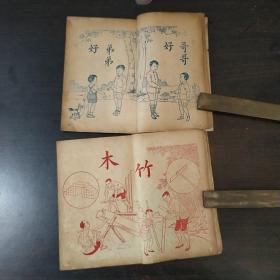 好哥哥
好弟弟
竹
木